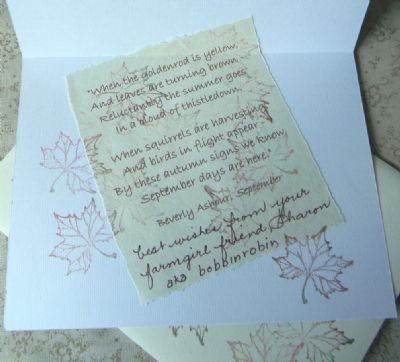 "When the goldenrod is yellow,
And leaves are turning brown -
Reluctantly the summer goes
In a cloud of thistledown.
When squirrels are harvesting
And birds in flight appear -
By these autumn signs we know
September days are here."
Beverly Ashour, September
best wishes from your
farmgirl friend, Sharon
aka bobbinrobin